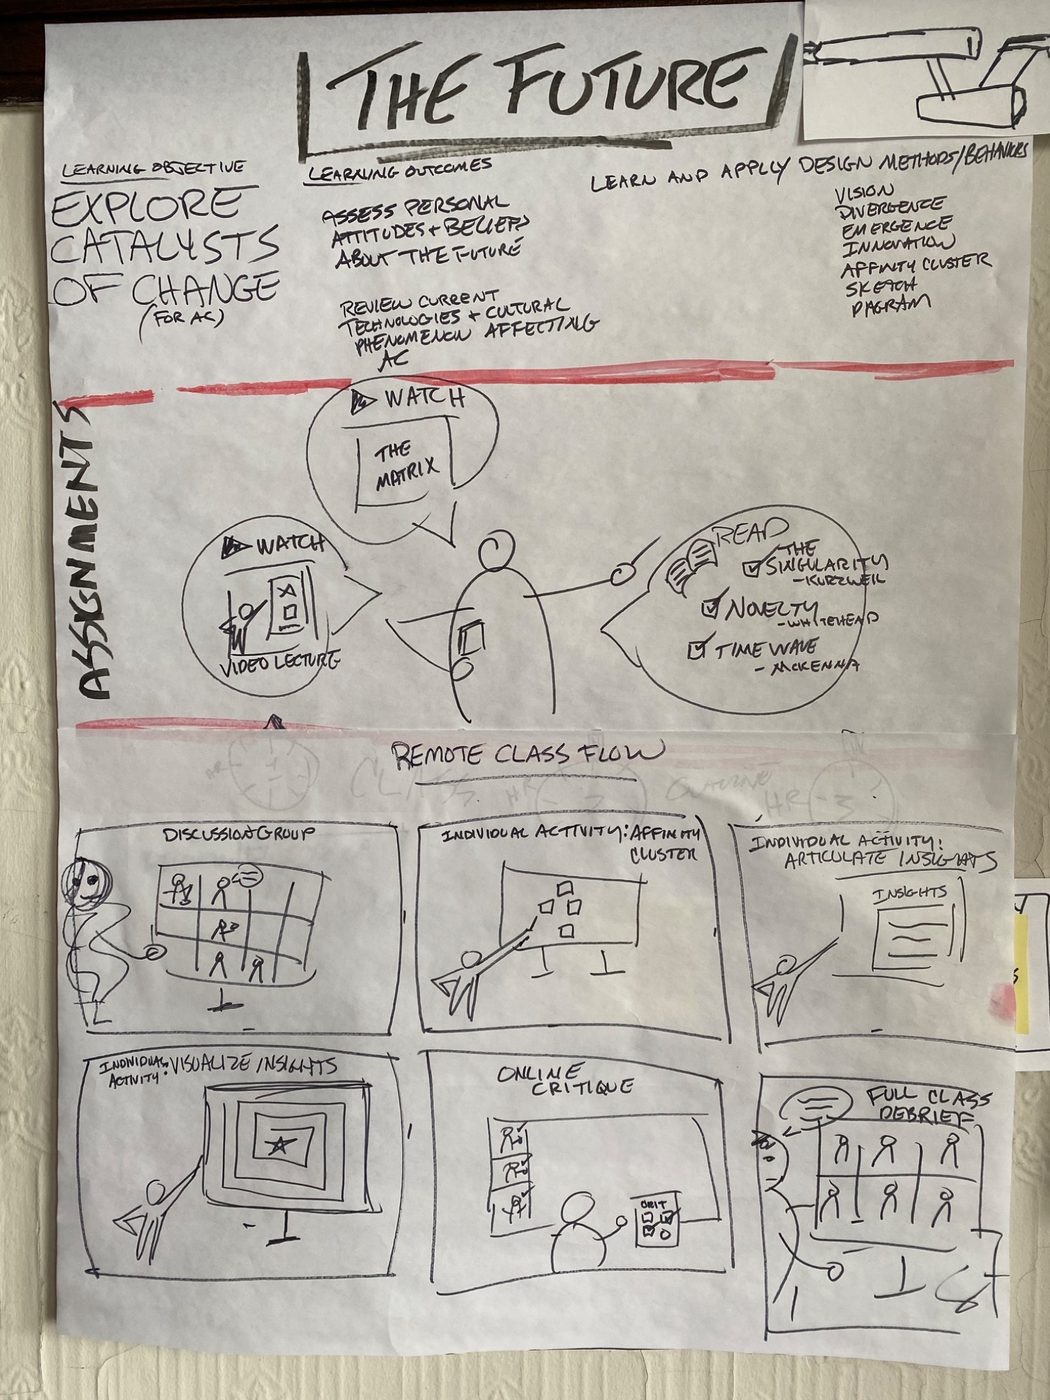 THE FUTURE
LEARNING OBJECTIVE
EXPLORE
CATALYSTS
OF CHANGE
(FOR AC)
LEARNING OUTCOMES
ASSESS PERSONAL
ATTITUDES + BELIEFS
ABOUT THE FUTURE
REVIEW CURRENT
TECHNOLOGIES + CULTURAL
PHENOMENON AFFECTING
AC
LEARN AND APPLY DESIGN METHODS/BEHAVIORS
VISION
DIVERGENCE
EMERGENCE
INNOVATION
AFFINITY CLUSTER
SKETCH
DIAGRAM
ASSIGNMENTS
WATCH
THE
MATRIX
WATCH
VIDEO LECTURE
READ
THE
SINGULARITY
- KURZWEIL
NOVELTY
- WHITEHEAD
TIME WAVE
- MCKENNA
REMOTE CLASS FLOW
HR
CLASS
HR
2
OUTLINE
HR
3
DISCUSSION GROUP
INDIVIDUAL ACTIVITY: AFFINITY
CLUSTER
INDIVIDUAL ACTIVITY:
ARTICULATE INSIGHTS
INSIGHTS
INDIVIDUAL
ACTIVITY: VISUALIZE INSIGHTS
ONLINE
CRITIQUE
CRIT
FULL CLASS
DEBRIEF